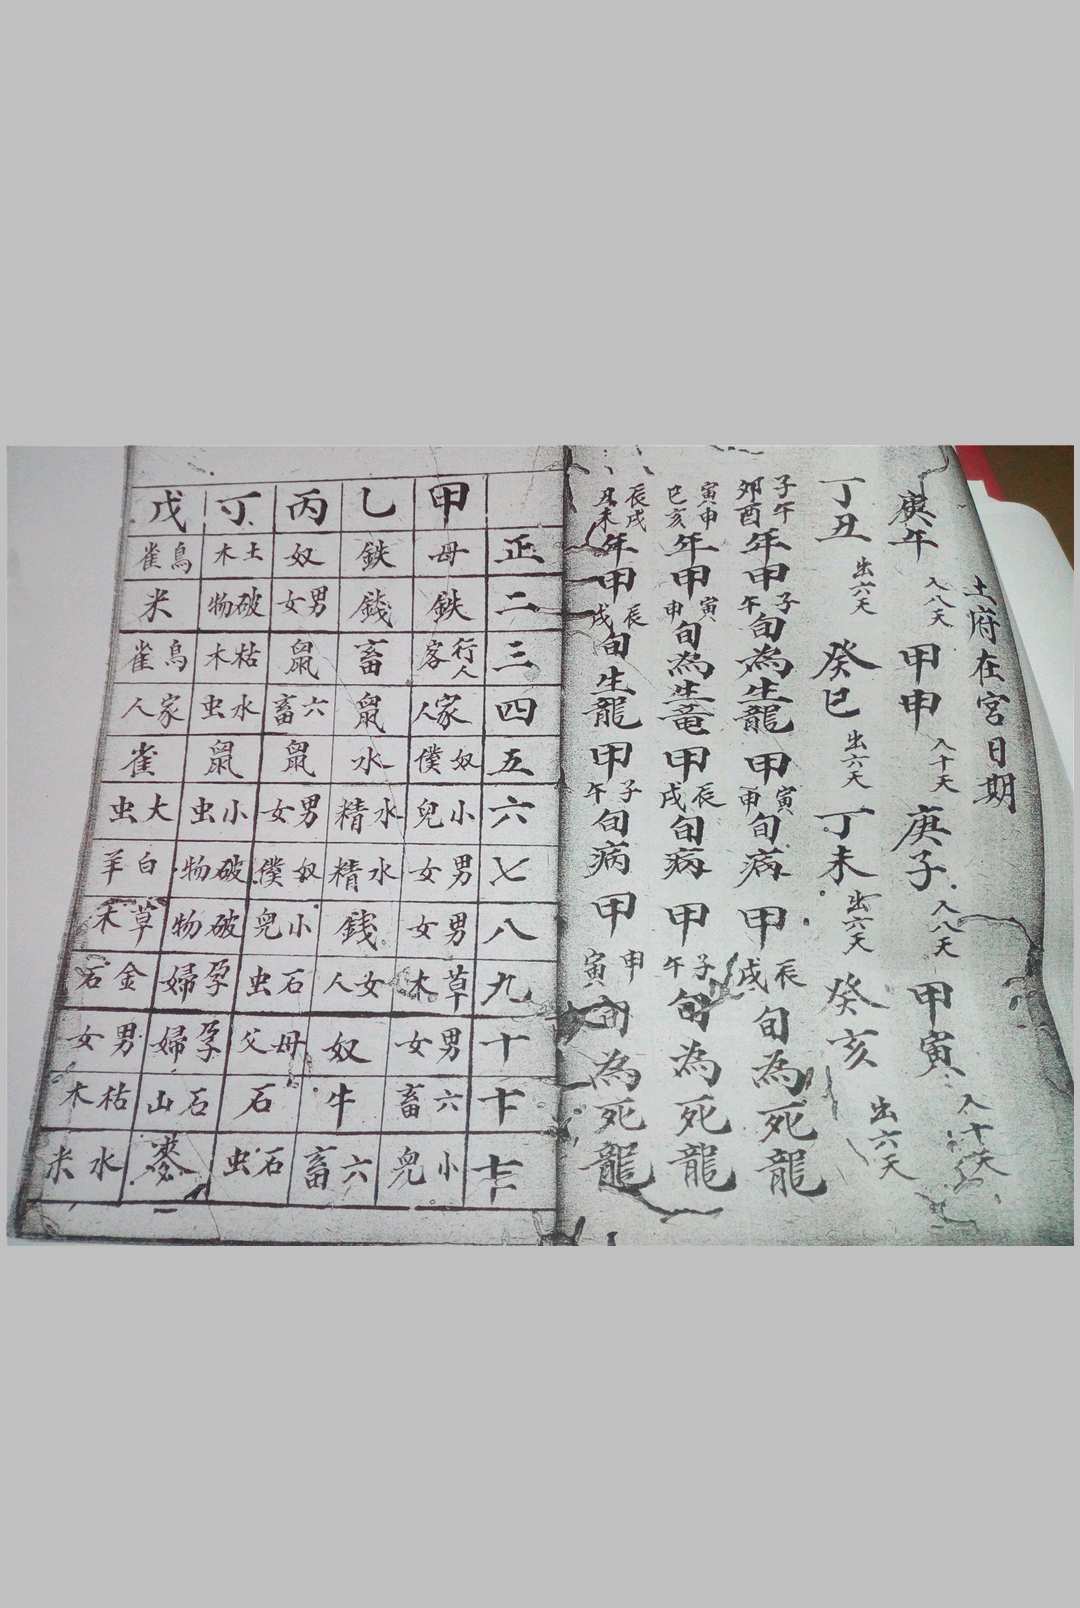 土府在宮日期
庚午 入八天 甲申 入十天 庚子 入八天 甲寅 入十天
丁丑 出六天 癸巳 出六天 丁未 出六天 癸亥 出六天
子午卯酉年甲子午旬為生龍甲寅申旬病甲辰戌旬為死龍
寅申巳亥年甲寅申旬為生竜甲辰戌旬病甲子午旬為死龍
辰戌丑未年甲辰戌旬生龍甲子午旬病甲申寅旬為死龍
正 二 三 四 五 六 七 八 九 十 十一 十二
甲 母 鉄 行人客 家人 奴僕 小兒 男女 男女 草木 男女 六畜 小兒
乙 鉄 錢 畜 鼠 水 水精 水精 錢 女人 奴 牛 六畜
丙 奴 男女 鼠 六畜 鼠 男女 奴僕 小兒 石虫 母父 石 石虫
丁 土木 破物 枯木 水虫 鼠 小虫 破物 破物 孕婦 孕婦 石山 麥
戊 鳥雀 米 鳥雀 家人 雀 大虫 白羊 草木 金石 男女 枯木 水米